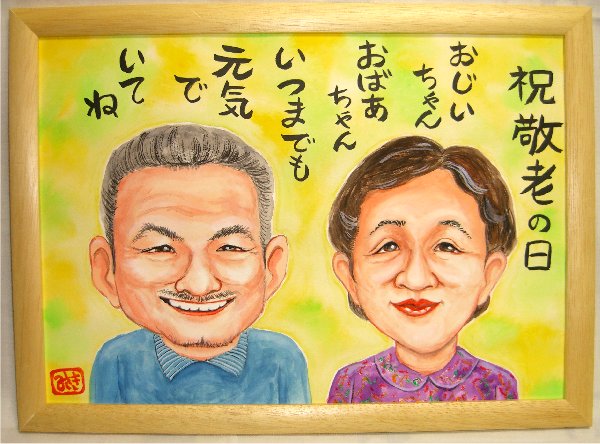 祝敬老の日
おじい
ちゃん
おばあ
ちゃん
いつまでも
元気
で
いて
ね
みさき